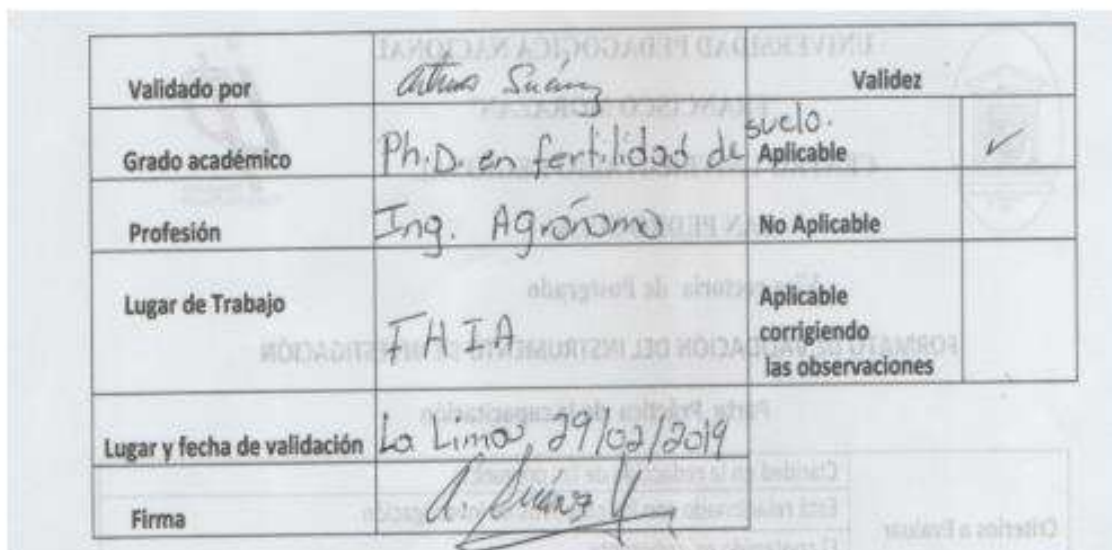 Validado por Arturo Suárez Validez
Grado académico Ph.D. en fertilidad de suelo. Aplicable ✓
Profesión Ing. Agrónomo No Aplicable
Lugar de Trabajo FHIA Aplicable
corrigiendo
las observaciones
Lugar y fecha de validación La Lima, 29/02/2019
Firma A. Suárez